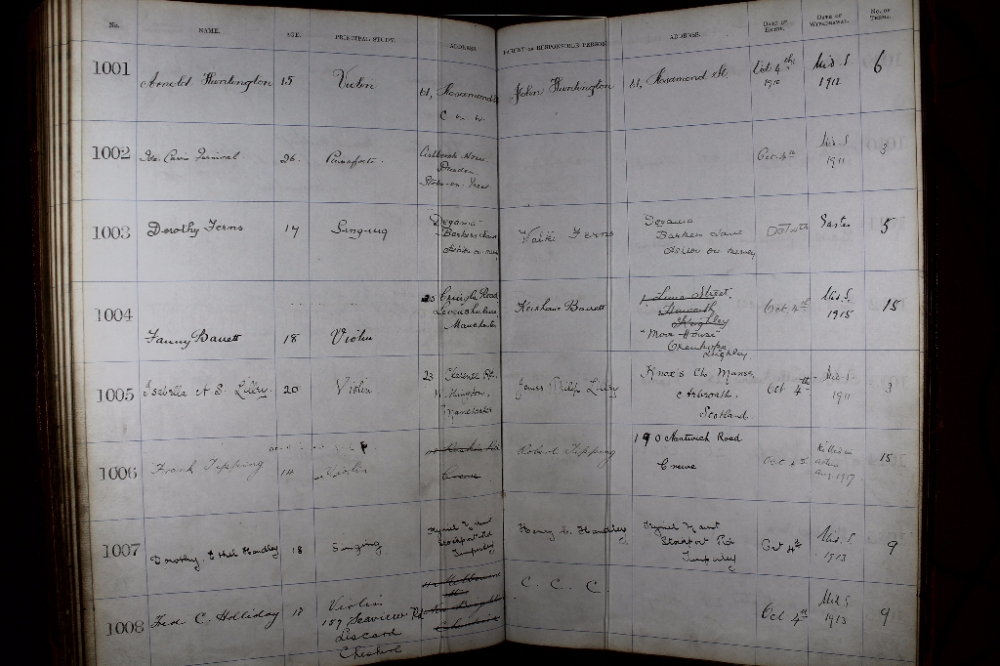 No. NAME. AGE. PRINCIPAL STUDY. ADDRESS. PARENT or RESPONSIBLE PERSON. ADDRESS. DATE OF ENTRY. DATE OF WITHDRAWAL. No. OF TERMS.
1001 Arnold Huntington 15 Violin 61, Rosamond St John Huntington 61, Rosamond St. Oct 4th 1910 Mid. S 1912 6
C on M
1002 26 Pianoforte Oct. 4th Mid. S 1911 3
1003 Dorothy Ferns 17 Singing Degania Ferns Degania Easter 5
Barkers Lane Barkers Lane
Ashton on Mersey Ashton on Mersey
1004 Fanny Barrett 18 Violin 25 Cringle Road Barrett 1, Lime Street Oct. 4th Mid. S. 1915 15
Levenshulme
Manchester Keighley
"Moor House"
Keighley
1005 Isabella A S. Lilley 20 Violin 23 James Philip Lilley Knox's Ch. Manse Oct 4th Mid. S. 1911 3
Withington, Arbroath
Manchester Scotland
1006 Frank Tipping 14 Violin Robert Tipping 190 Nantwich Road Oct 4th Killed in action Aug. 1917 15
Crewe Crewe
1007 Dorothy Ethel Handley 18 Singing Henry C. Handley Oct 4th Mid. S. 1913 9
Stockport Rd Stockport Rd
Timperley Timperley
1008 Fred C. Holliday 18 Violin C. C. C. Oct 4th Mid S 1913 9
159 Seaview Rd
Liscard
Cheshire